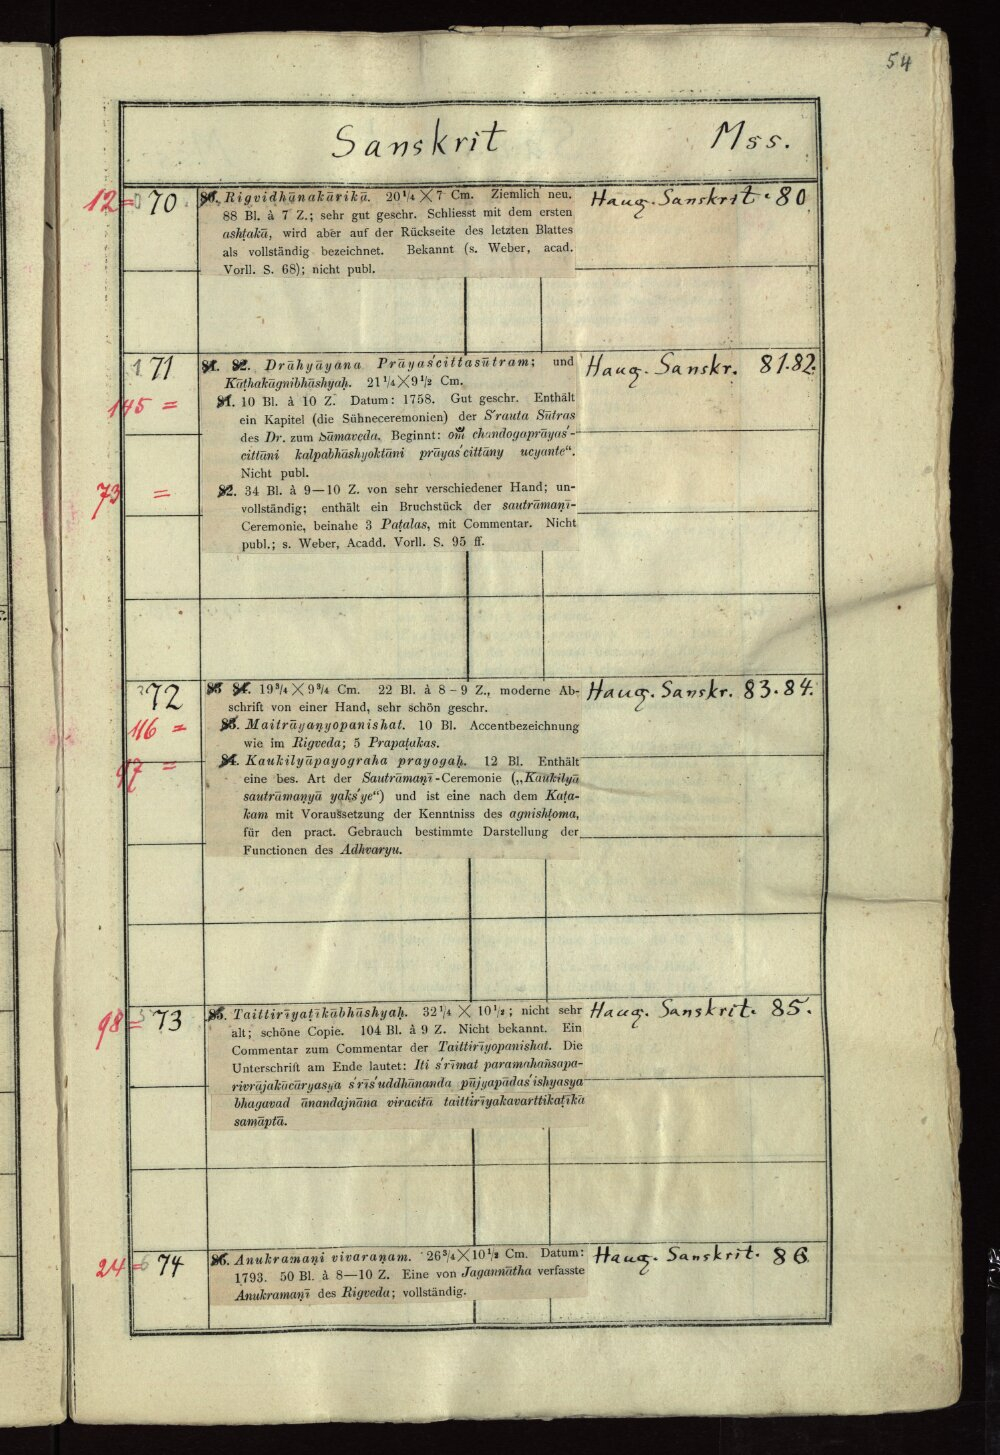 54
Sanskrit Mss.
12 = 70 80. Rigvidhānakārikā. 20 1/4 × 7 Cm. Ziemlich neu. Haug. Sanskrit. 80
88 Bl. à 7 Z.; sehr gut geschr. Schliesst mit dem ersten
ashṭakā, wird aber auf der Rückseite des letzten Blattes
als vollständig bezeichnet. Bekannt (s. Weber, acad.
Vorll. S. 68); nicht publ.
71 81. 82. Drāhyāyana Prāyaścittasūtram; und Haug. Sanskr. 81.82.
Kāṭhakāgnibhāshyaḥ. 21 1/4 × 9 1/2 Cm.
145 = 81. 10 Bl. à 10 Z. Datum: 1758. Gut geschr. Enthält
ein Kapitel (die Sühneceremonien) der S'rauta Sūtras
des Dr. zum Sāmaveda. Beginnt: om̃ chandogaprāyas'-
cittāni kalpabhāshyoktāni prāyas'cittāny ucyante“.
Nicht publ.
73 = 82. 34 Bl. à 9—10 Z. von sehr verschiedener Hand; un-
vollständig; enthält ein Bruchstück der sautrāmaṇī-
Ceremonie, beinahe 3 Paṭalas, mit Commentar. Nicht
publ.; s. Weber, Acadd. Vorll. S. 95 ff.
72 83 84. 19 3/4 × 9 3/4 Cm. 22 Bl. à 8-9 Z., moderne Ab- Haug. Sanskr. 83.84.
schrift von einer Hand, sehr schön geschr.
116 = 83. Maitrāyaṇyopanishat. 10 Bl. Accentbezeichnung
wie im Rigveda; 5 Prapaṭakas.
97 = 84. Kaukilyāpayograha prayogaḥ. 12 Bl. Enthält
eine bes. Art der Sautrāmaṇī-Ceremonie („Kaukilyā
sautrāmaṇyā yaks'ye“) und ist eine nach dem Kaṭa-
kam mit Voraussetzung der Kenntniss des agnishṭoma,
für den pract. Gebrauch bestimmte Darstellung der
Functionen des Adhvaryu.
98 = 73 85. Taittirīyaṭīkābhāshyaḥ. 32 1/4 × 10 1/2; nicht sehr Haug. Sanskrit. 85.
alt; schöne Copie. 104 Bl. à 9 Z. Nicht bekannt. Ein
Commentar zum Commentar der Taittirīyopanishat. Die
Unterschrift am Ende lautet: Iti s'rīmat paramahañsapa-
rivrājakācāryasya s'rīs'uddhānanda pūjyapādas'ishyasya
bhagavad ānandajnāna viracitā taittirīyakavarttikaṭīkā
samāptā.
24 = 74 86. Anukramaṇi vivaraṇam. 26 3/4 × 10 1/2 Cm. Datum: Haug. Sanskrit. 86
1793. 50 Bl. à 8—10 Z. Eine von Jagannātha verfasste
Anukramaṇī des Rigveda; vollständig.